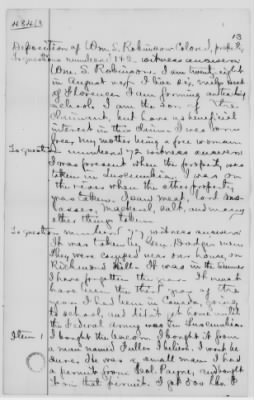 13
4843
Deposition of Wm. S. Robinson Colored, properly
To questions numbered 1 & 2 witness answers
Wm. S. Robinson. I am twenty eight
in August next. I live six miles west
of Florence. I am farming and teaching
school. I am the son of the
claimant, but have no beneficial
interest in this claim. I was born
free, my mother being a free woman
To question numbered 72 witness answers
I was present when the property was
taken in Tuscumbia. I was on
the river when the other property
was taken. I saw meat, lard mo-
lasses, mackerel, salt, and many
other things taken.
To question numbered 73 witness answers
It was taken by Gen. Dodges men
They were camped near our house, on
Richmond Hills. It was in the summer
I have forgotten the year. It must
have been the third year of the
war. I had been in Canada, going
to school, and didn't get home until
the Federal army was in Tuscumbia.
Item 1 I bought the bacon. I bought it from
a man named Fuller I believe. I won't be
sure. He was a small man. I had
a permit from Col. Payne, and bought
it on that permit. I got 500 lbs